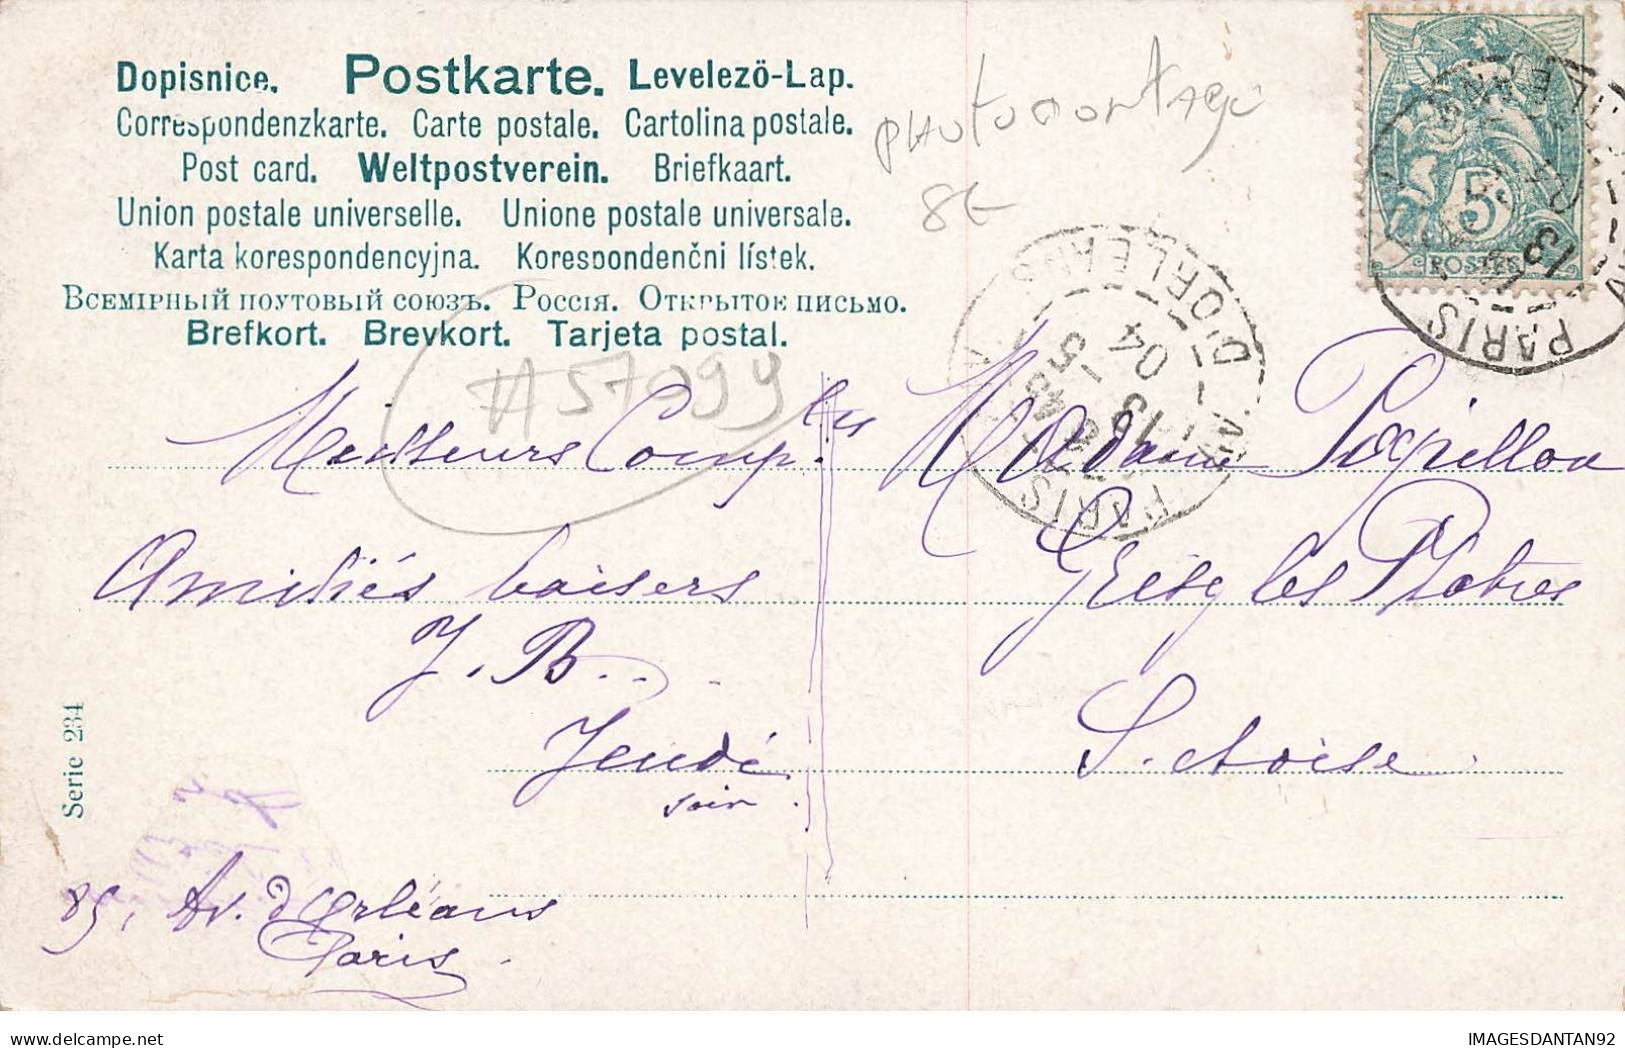 Dopisnice. Postkarte. Levelezö-Lap.
Correspondenzkarte. Carte postale. Cartolina postale.
Post card. Weltpostverein. Briefkaart.
Union postale universelle. Unione postale universale.
Karta korespondencyjna. Korespondenčni lístek.
Всемірный поутовый союзъ. Россія. Открытое письмо.
Brefkort. Brevkort. Tarjeta postal.
photomontage
8€
5c
POSTES
PARIS
AV. D'ORLEANS
PARIS
5 45
13
04
#57099
Meilleurs Comp.ts
Amitiés baisers
J. B...
Jeudi
soir
85, Av. d'Orléans
Paris.
Madame Papillon
Grisy les Platres
S. et Oise.
Serie 234
IMAGESDANTAN92